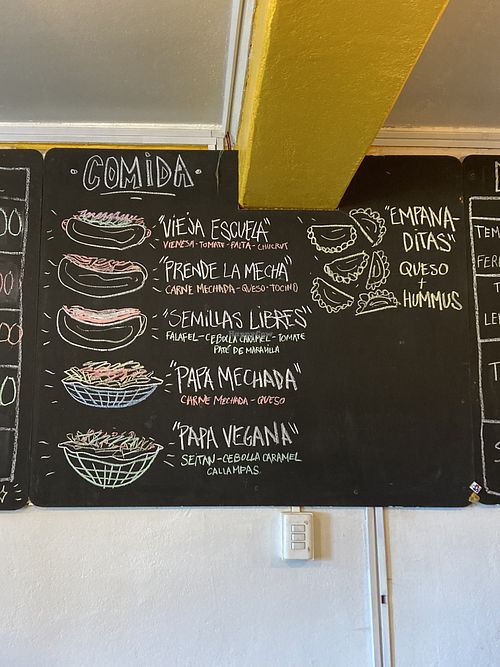 · COMIDA ·
"VIEJA ESCUELA"
VIENESA - TOMATE - PALTA - CHUCRUT
"PRENDE LA MECHA"
CARNE MECHADA - QUESO - TOCINO
"SEMILLAS LIBRES"
FALAFEL - CEBOLLA CARAMEL - TOMATE
PATÉ DE MARAVILLA
"PAPA MECHADA"
CARNE MECHADA - QUESO
"PAPA VEGANA"
SEITAN - CEBOLLA CARAMEL
CALLAMPAS
"EMPANA-
DITAS"
QUESO
+
HUMMUS